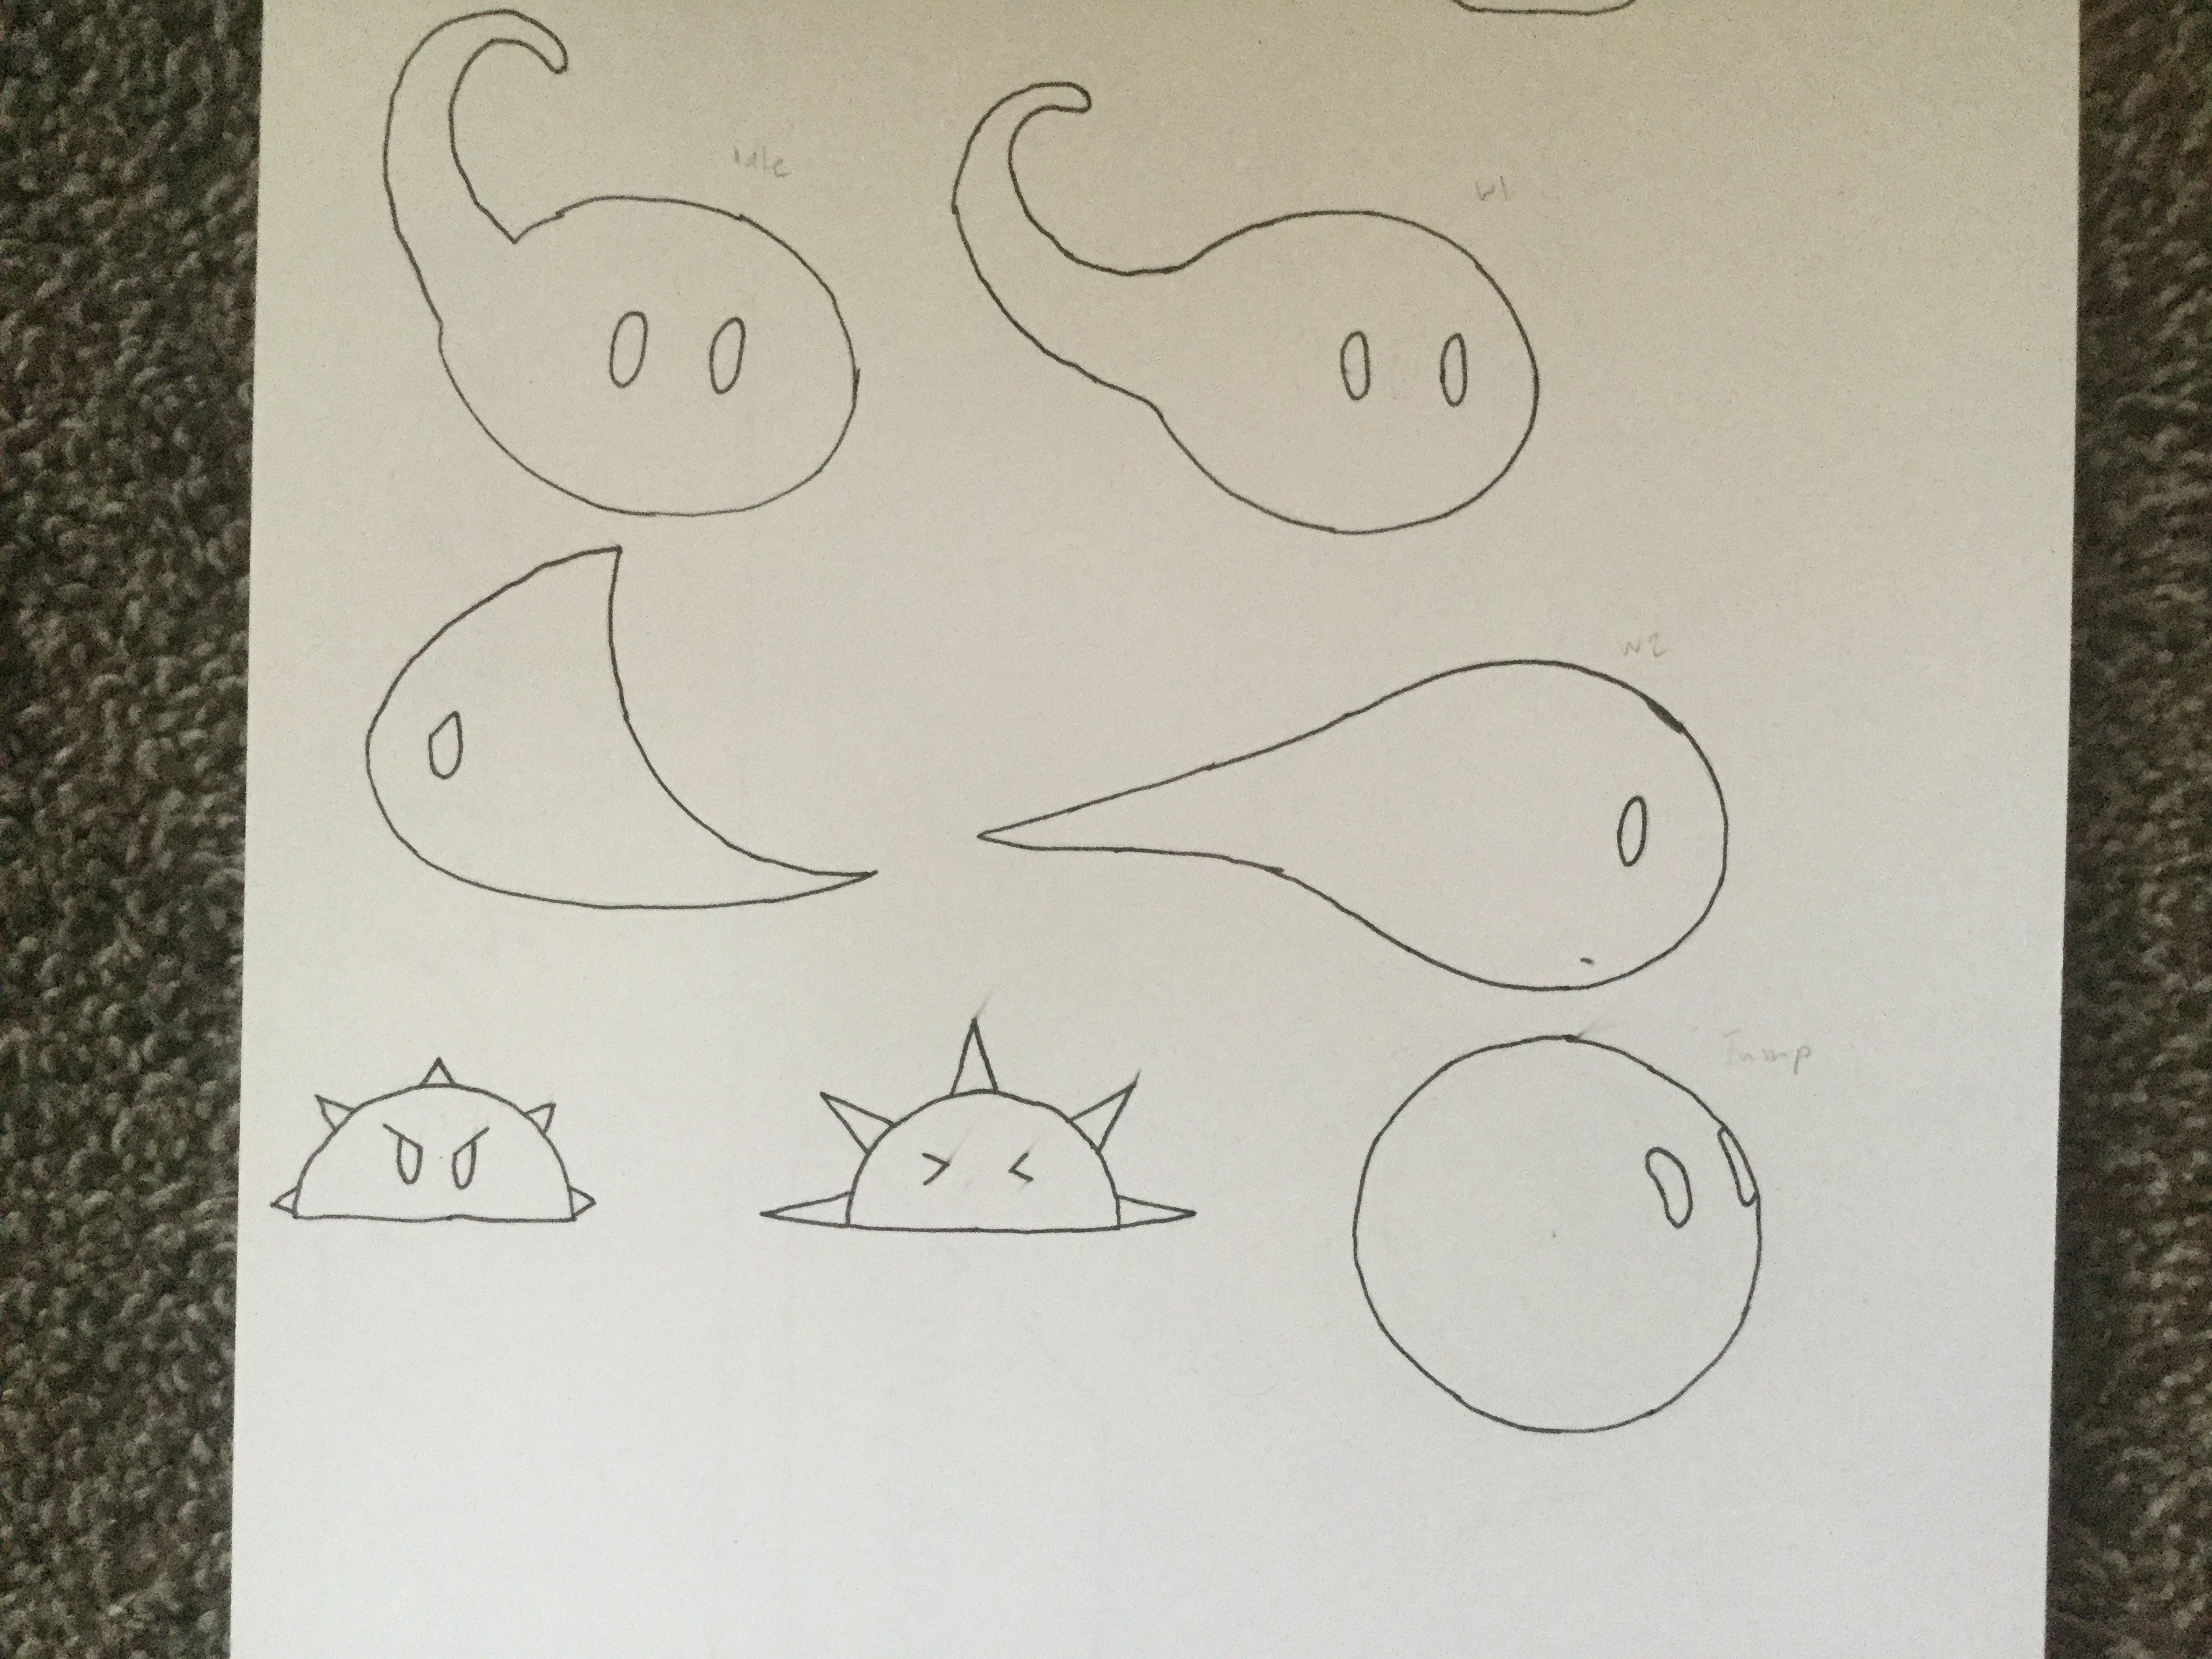 idle
W1
W2
Jump